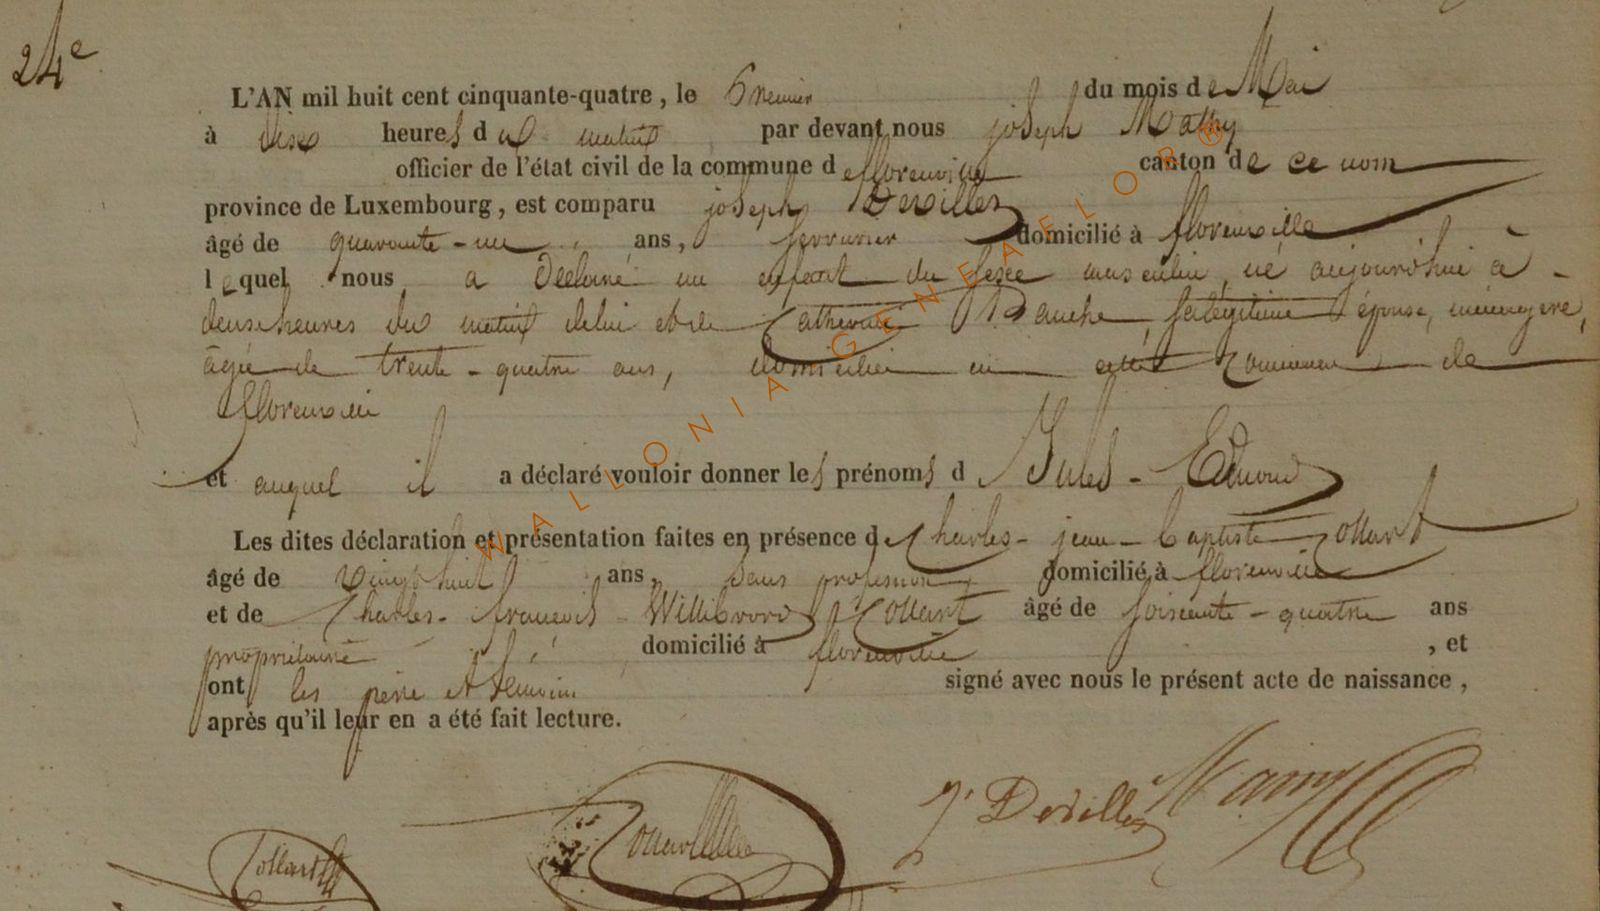 24e
L'AN mil huit cent cinquante-quatre, le premier du mois de Mai
à dix heures du matin par devant nous joseph Mathy
officier de l'état civil de la commune de florenville canton de ce nom
province de Luxembourg, est comparu joseph Devilles
âgé de quarante-un ans, serrurier domicilié à florenville
lequel nous a déclaré un enfant du sexe masculin, né aujourd'hui à
deux heures du matin de lui et de Catherine Bauche, sa légitime épouse, ménagère,
âgée de trente-quatre ans, domiciliée en cette commune de
florenville
et auquel il a déclaré vouloir donner les prénoms d Jules-Edmond
Les dites déclaration et présentation faites en présence de Charles-jean-baptiste Collart
âgé de vingt huit ans, sans profession domicilié à florenville
et de Charles-françois-Willibrord Collart âgé de soixante-quatre ans
propriétaire domicilié à florenville, et
ont les père et témoins signé avec nous le présent acte de naissance,
après qu'il leur en a été fait lecture.
J. Devilles
Collart
WALLONIA GENEAELOR ®